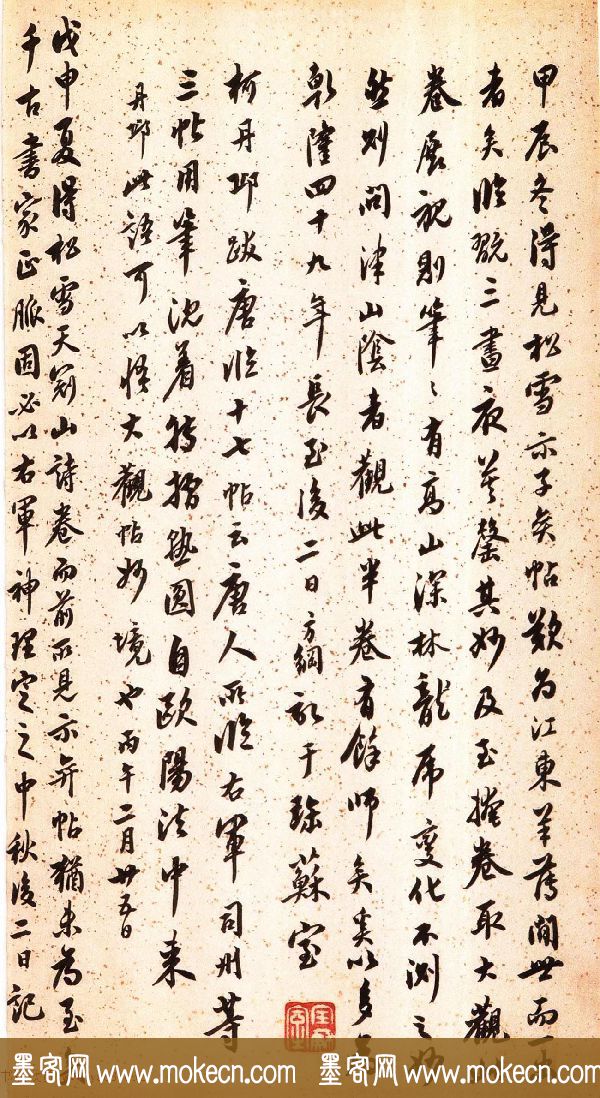 甲辰冬得見松雪示子奕帖歎為江東羊薄間世而一
者矣臨翫三晝夜莫罄其妙及至掩卷取大觀
卷展視則筆〻有高山深林龍虎變化不測之妙
然則問津山陰者觀此半卷有餘師矣奚以多為
乾隆四十九年長至後二日方綱記于蘇室
柯丹邱跋唐臨十七帖云唐人所臨右軍司州等
三帖用筆沈着轉摺熟圓自歐陽法中來
丹邱此語可以悟大觀帖妙境也丙午二月廿五日
戊申夏得松雪天冠山詩卷而前所見示奕帖猶未為至
千古書家正脈固必以右軍神理定之中秋後二日記
墨客网 www.mokecn.com 墨客网 www.mokecn.com